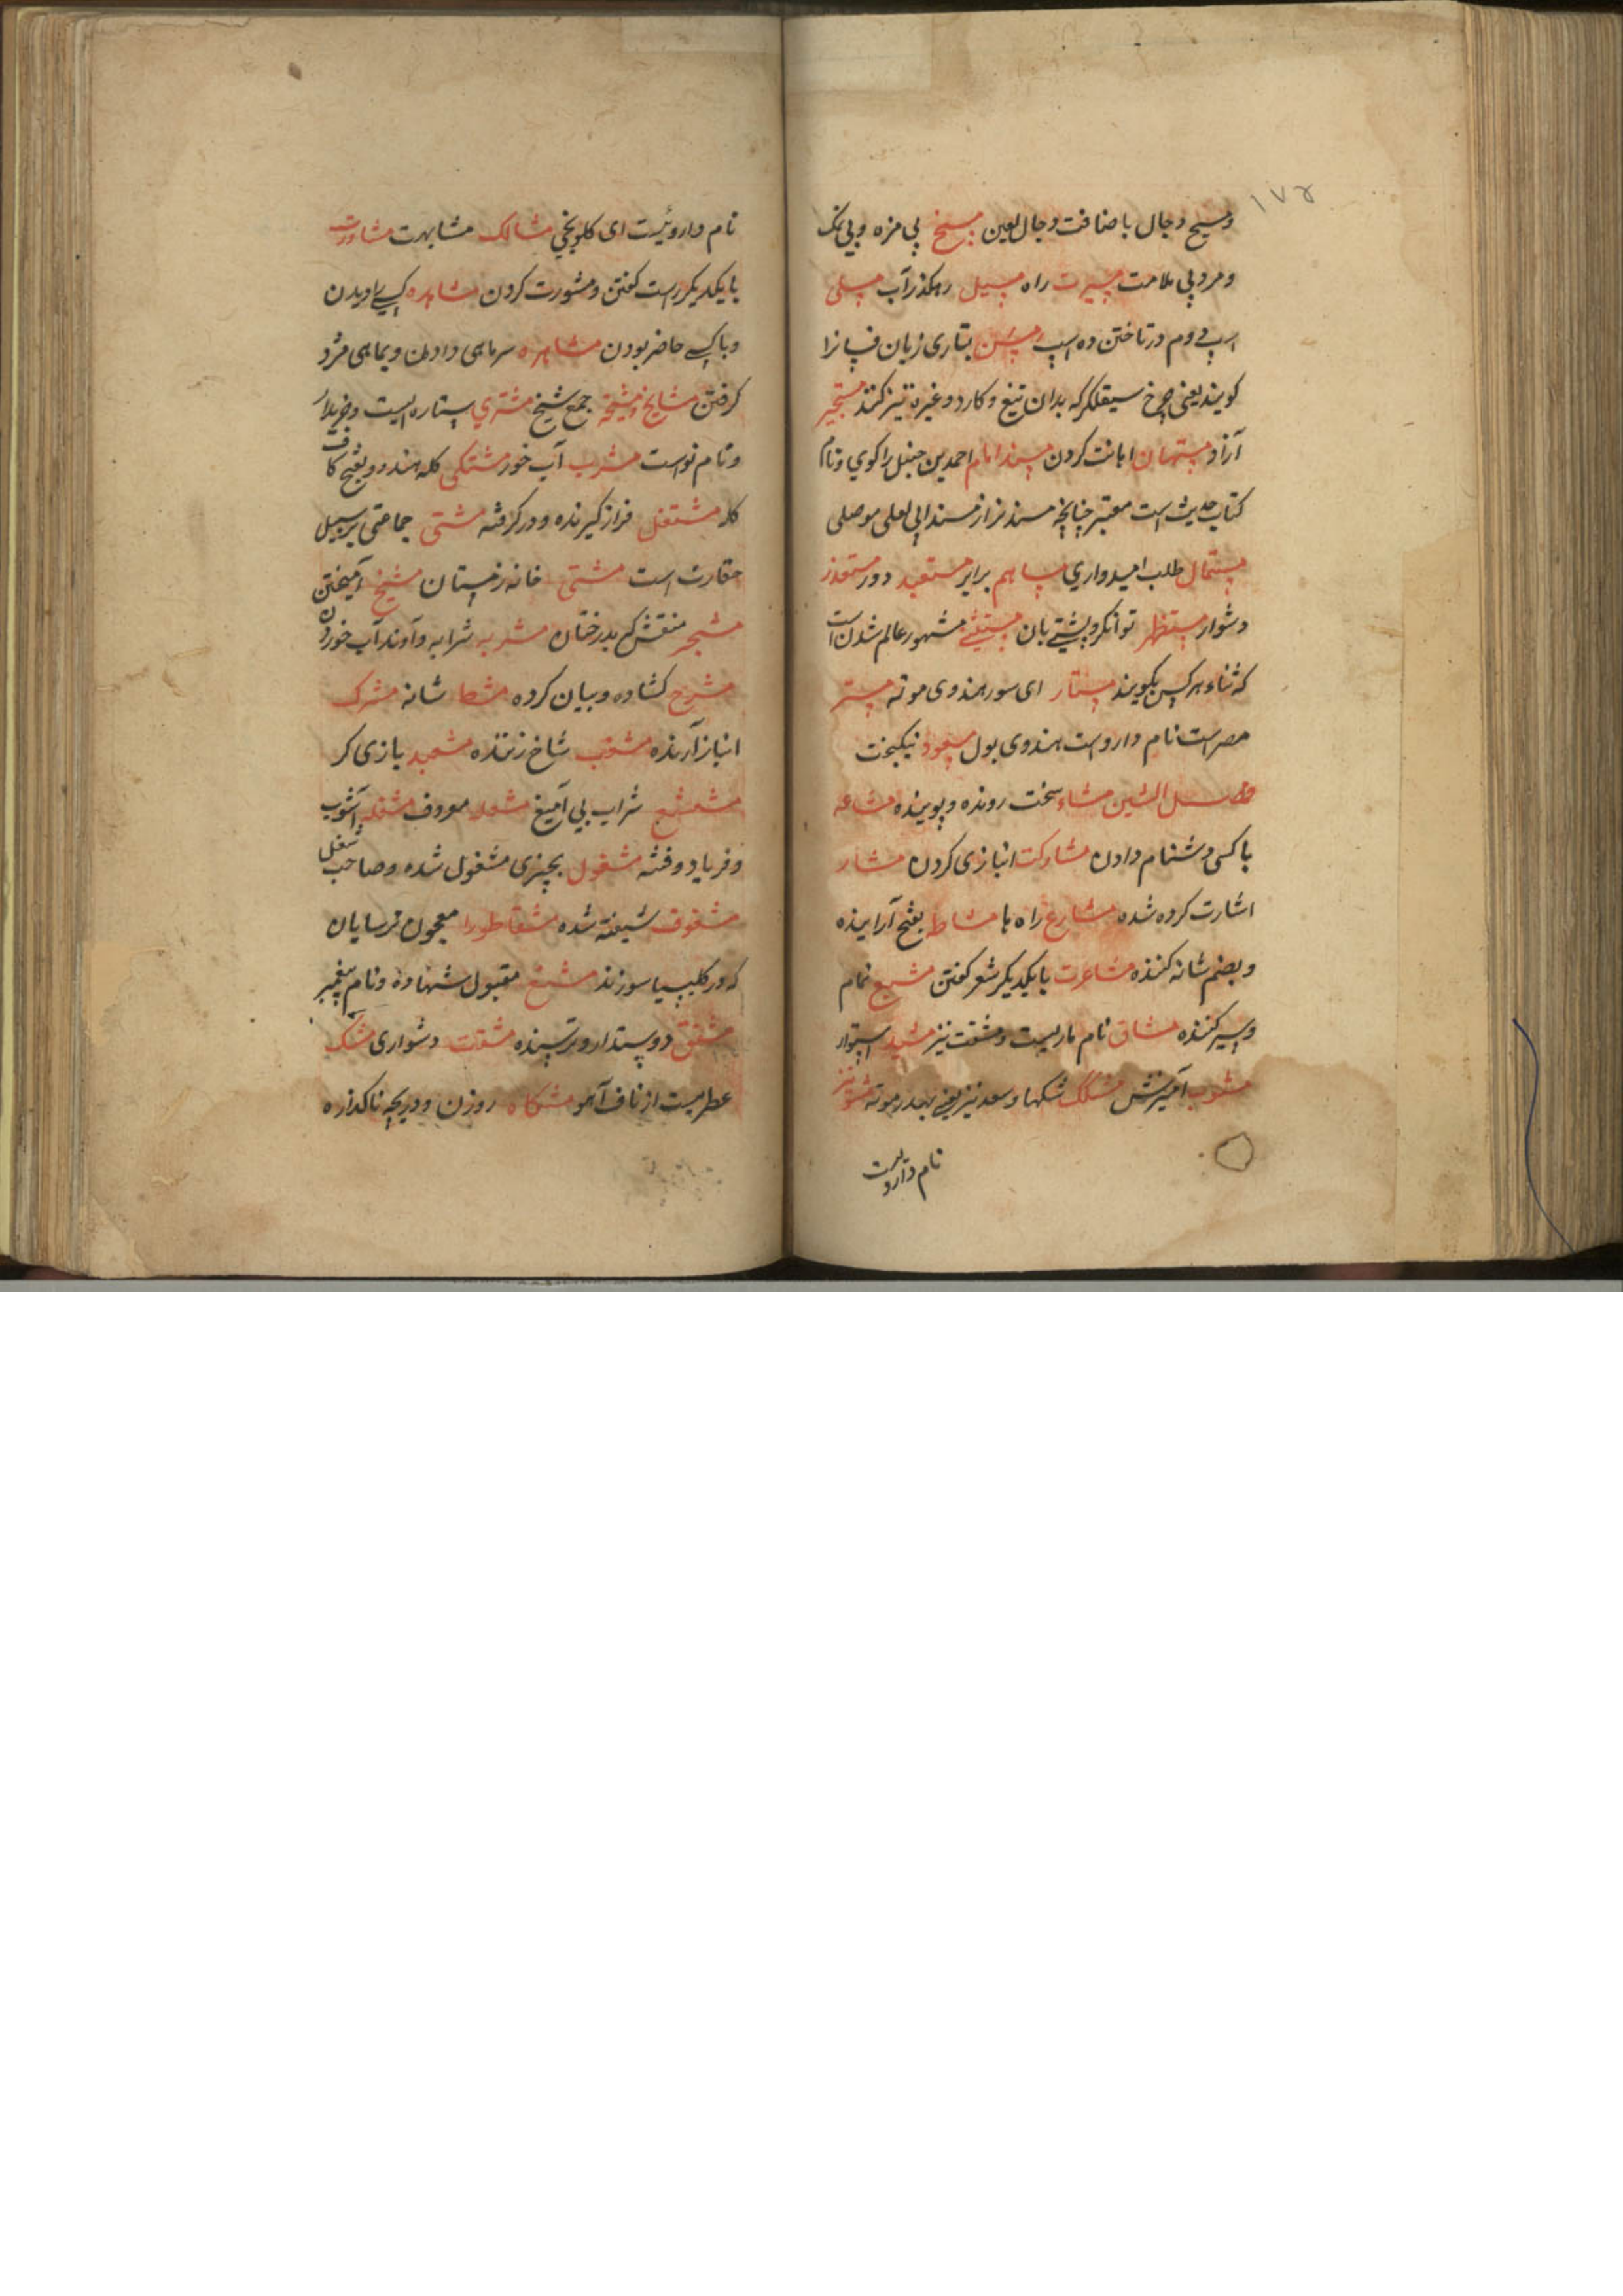 ۱۷۲
ومسیح دجال باضافت دجال لعین مسیخ بی مزه وبی نمک
ومرد بی ملامت مسیرت راه مسیل رهکذر آب مسلی
اسپ دوم در تاختن ده اسپ مسن بتازی زبان فسانرا
کویند یعنی چرخ سیقلکر که بدان تیغ و کارد و غیره تیز کنند مستجیر
آزاد مستهان اهانت کردن مسند امام احمد بن حنبل را کوی ونام
کتاب حدیث است معتبر چنانچه مسند بزاز مسند ابی یعلی موصلی
مستمال طلب امیدواری مساهم برابر مستعبد دور مستعذر
دشوار مستظهر توانکر و پشتی بان مشهور عالم شدن است
که ثناء هر کس بکویند مستار ای سور هندوی موته مستر
مصر است نام داروست هندوی بول مسعود نیکبخت
فصل الشین مشاء سخت رونده وپوینده مشاعه
با کسی دشنام دادن مشارکت انبازی کردن مشار
اشارت کرده شده مشارع راه ها مشاطه بفتح آراینده
وبضم شانه کننده مشاعرت بایکدیکر شعر کفتن مشبع تمام
وسیر کننده مشاق نام ماریست ومشقت نیز مشید استوار
مشوب آمیزش مشکک شکها وسعد نیز یعنی موته
نام داروست
نام داروئیست ای کلونجی مشالک مشابهت مشاورت
بایکدیکر راست کفتن ومشورت کردن مشاهده کسی را دیدن
وباکسی حاضر بودن مشاهره سرماهی دادن وبماهی مزد
کرفتن مشایخ ومشیخة جمع شیخ مشتری ستاره ایست وخریدار
ونام نواست مشرب آب خور مشتکی کله مند وبفتح کاف
کله مشتغل فراز کیرنده ودر کرفته مشتی جماعتی برسبیل
حقارت است مشتی خانه زمستان مشیخ آمیختن
مشجر منقش کم بدرختان مشربه شرابه وآوند آب خوردن
مشرح کشاده وبیان کرده مشط شانه مشرک
انباز آرنده مشعب شاخ زننده مشعبد بازی کر
مشعشع شراب بی آمیغ مشعله معروف مشغله آشوب
وفریاد وفتنه مشغول بچیزی مشغول شده وصاحب شغل
مشغوف شیفته شده مشقاطورا معجون ترسایان
که در کلیسیا سوزند مشفع مقبول شهاده ونام پیغمبر
مشفق دوستدار وترسنده مشقت دشواری مشک
عطریست از ناف آهو مشکاه روزن ودریچه ناکذاره